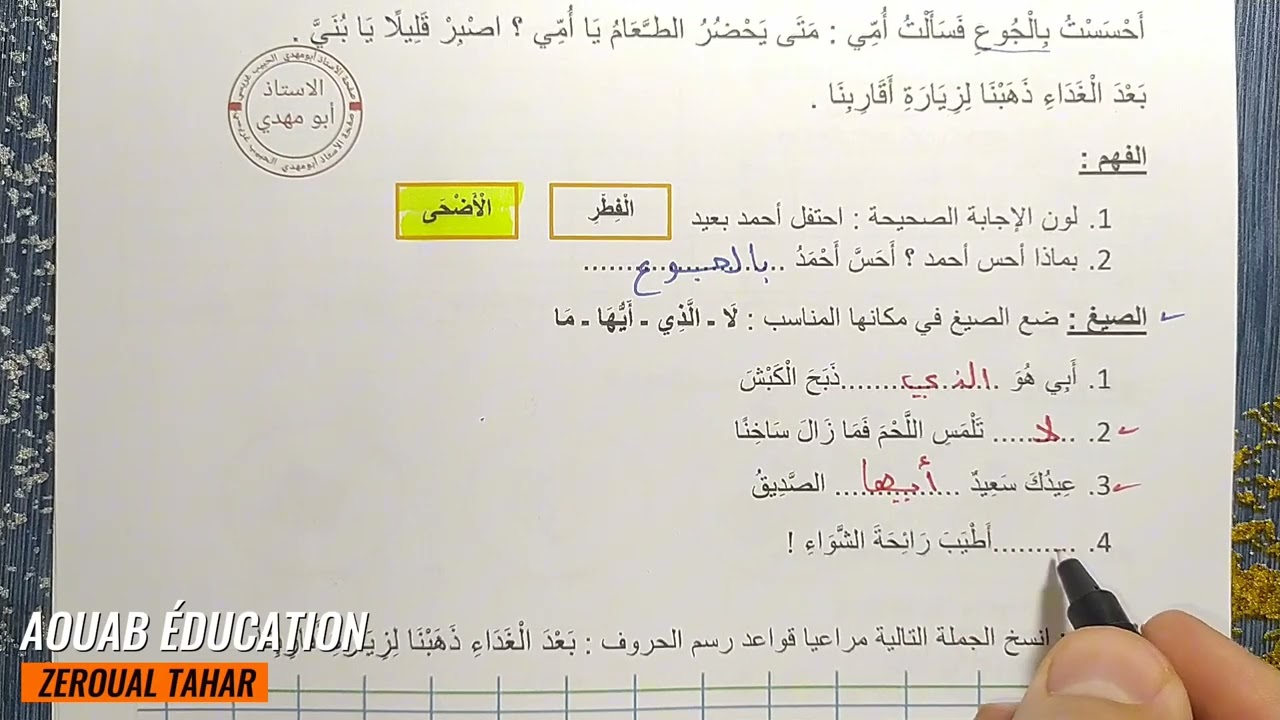 أَحْسَسْتُ بِالْجُوعِ فَسَأَلْتُ أُمِّي : مَتَى يَحْضُرُ الطَّعَامُ يَا أُمِّي ؟ اصْبِرْ قَلِيلًا يَا بُنَيَّ .
بَعْدَ الْغَدَاءِ ذَهَبْنَا لِزِيَارَةِ أَقَارِبِنَا .
صفحة الاستاذ أبومهدي الحبيب غريسي
الاستاذ
أبو مهدي
صفحة الاستاذ أبومهدي الحبيب غريسي
الفهم :
1. لون الإجابة الصحيحة : احتفل أحمد بعيد الْفِطْرِ الْأَضْحَى
2. بماذا أحس أحمد ؟ أَحَسَّ أَحْمَدُ بالجوع
الصيغ : ضع الصيغ في مكانها المناسب : لَا - الَّذِي - أَيُّهَا - مَا
1. أَبِي هُوَ الذي ذَبَحَ الْكَبْشَ
2. لا تَلْمَسِ اللَّحْمَ فَمَا زَالَ سَاخِنًا
3. عِيدُكَ سَعِيدٌ أيها الصَّدِيقُ
4. ..........أَطْيَبَ رَائِحَةَ الشَّوَاءِ !
: انسخ الجملة التالية مراعيا قواعد رسم الحروف : بَعْدَ الْغَدَاءِ ذَهَبْنَا لِزِيَارَةِ
AOUAB ÉDUCATION
ZEROUAL TAHAR